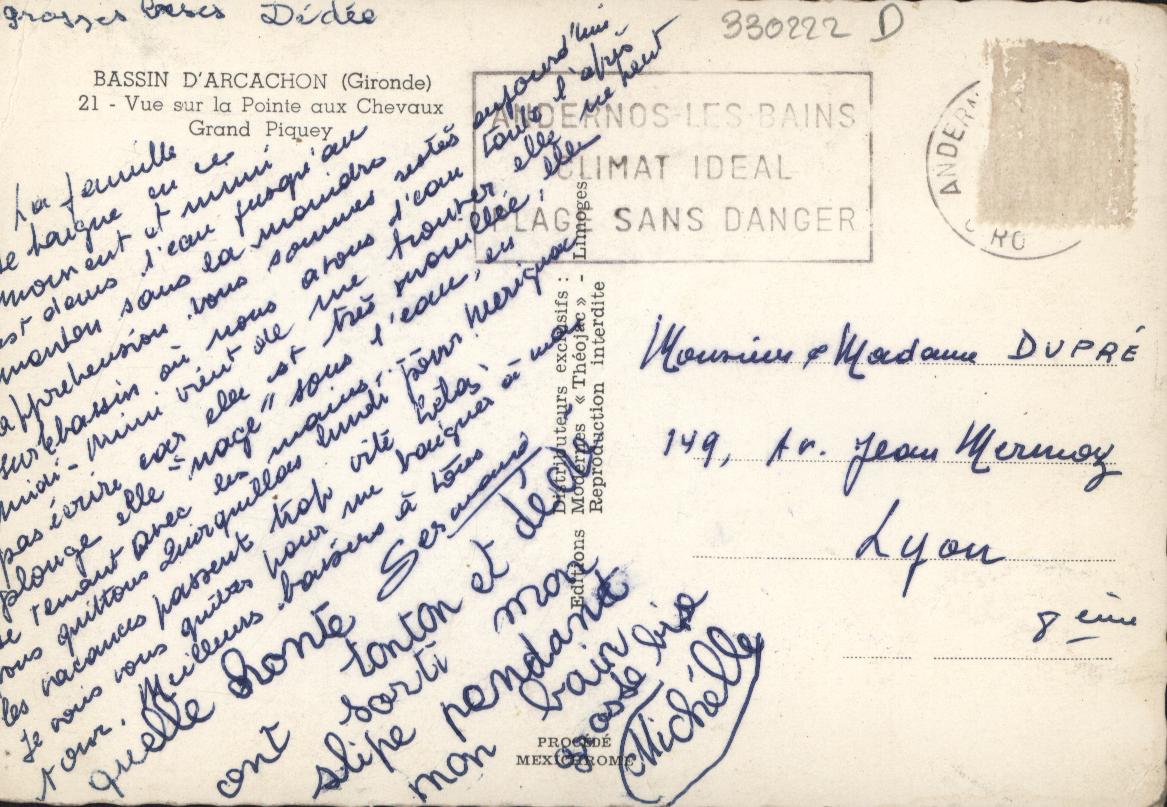 grosses bises Dédée
330222 D
BASSIN D'ARCACHON (Gironde)
21 - Vue sur la Pointe aux Chevaux
Grand Piquey
ANDERNOS-LES-BAINS
CLIMAT IDEAL
PLAGE SANS DANGER
ANDER
La famille
se baigne en ce
moment et mimi
est dans l'eau jusqu'au
menton sans la moindre
appréhension. Nous sommes restés aujourd'hui
sur bassin où nous avons l'eau toute l'après
midi - mimi vient de me trouver elle ne peut
pas écrire car elle est très mouillée, elle
plonge elle "nage" sous l'eau, en
se tenant avec les mains.
nous quittons lundi pour Merignac
les vacances passent trop vite hélas
Je vous quittes pour me baigner à mon
tour. Meilleurs baisers à tous
Germaine
quelle honte
tonton et dédé
ont sorti mon
slipe pendant
mon bain
grosse bise
Michéle
Editions Modernes « Théojac » - Limoges
Distributeurs exclusifs :
Reproduction interdite
PROCÉDÉ
MEXICHROME
Monsieur & Madame DUPRÉ
149, Av. Jean Mermoz
Lyon
8 ème